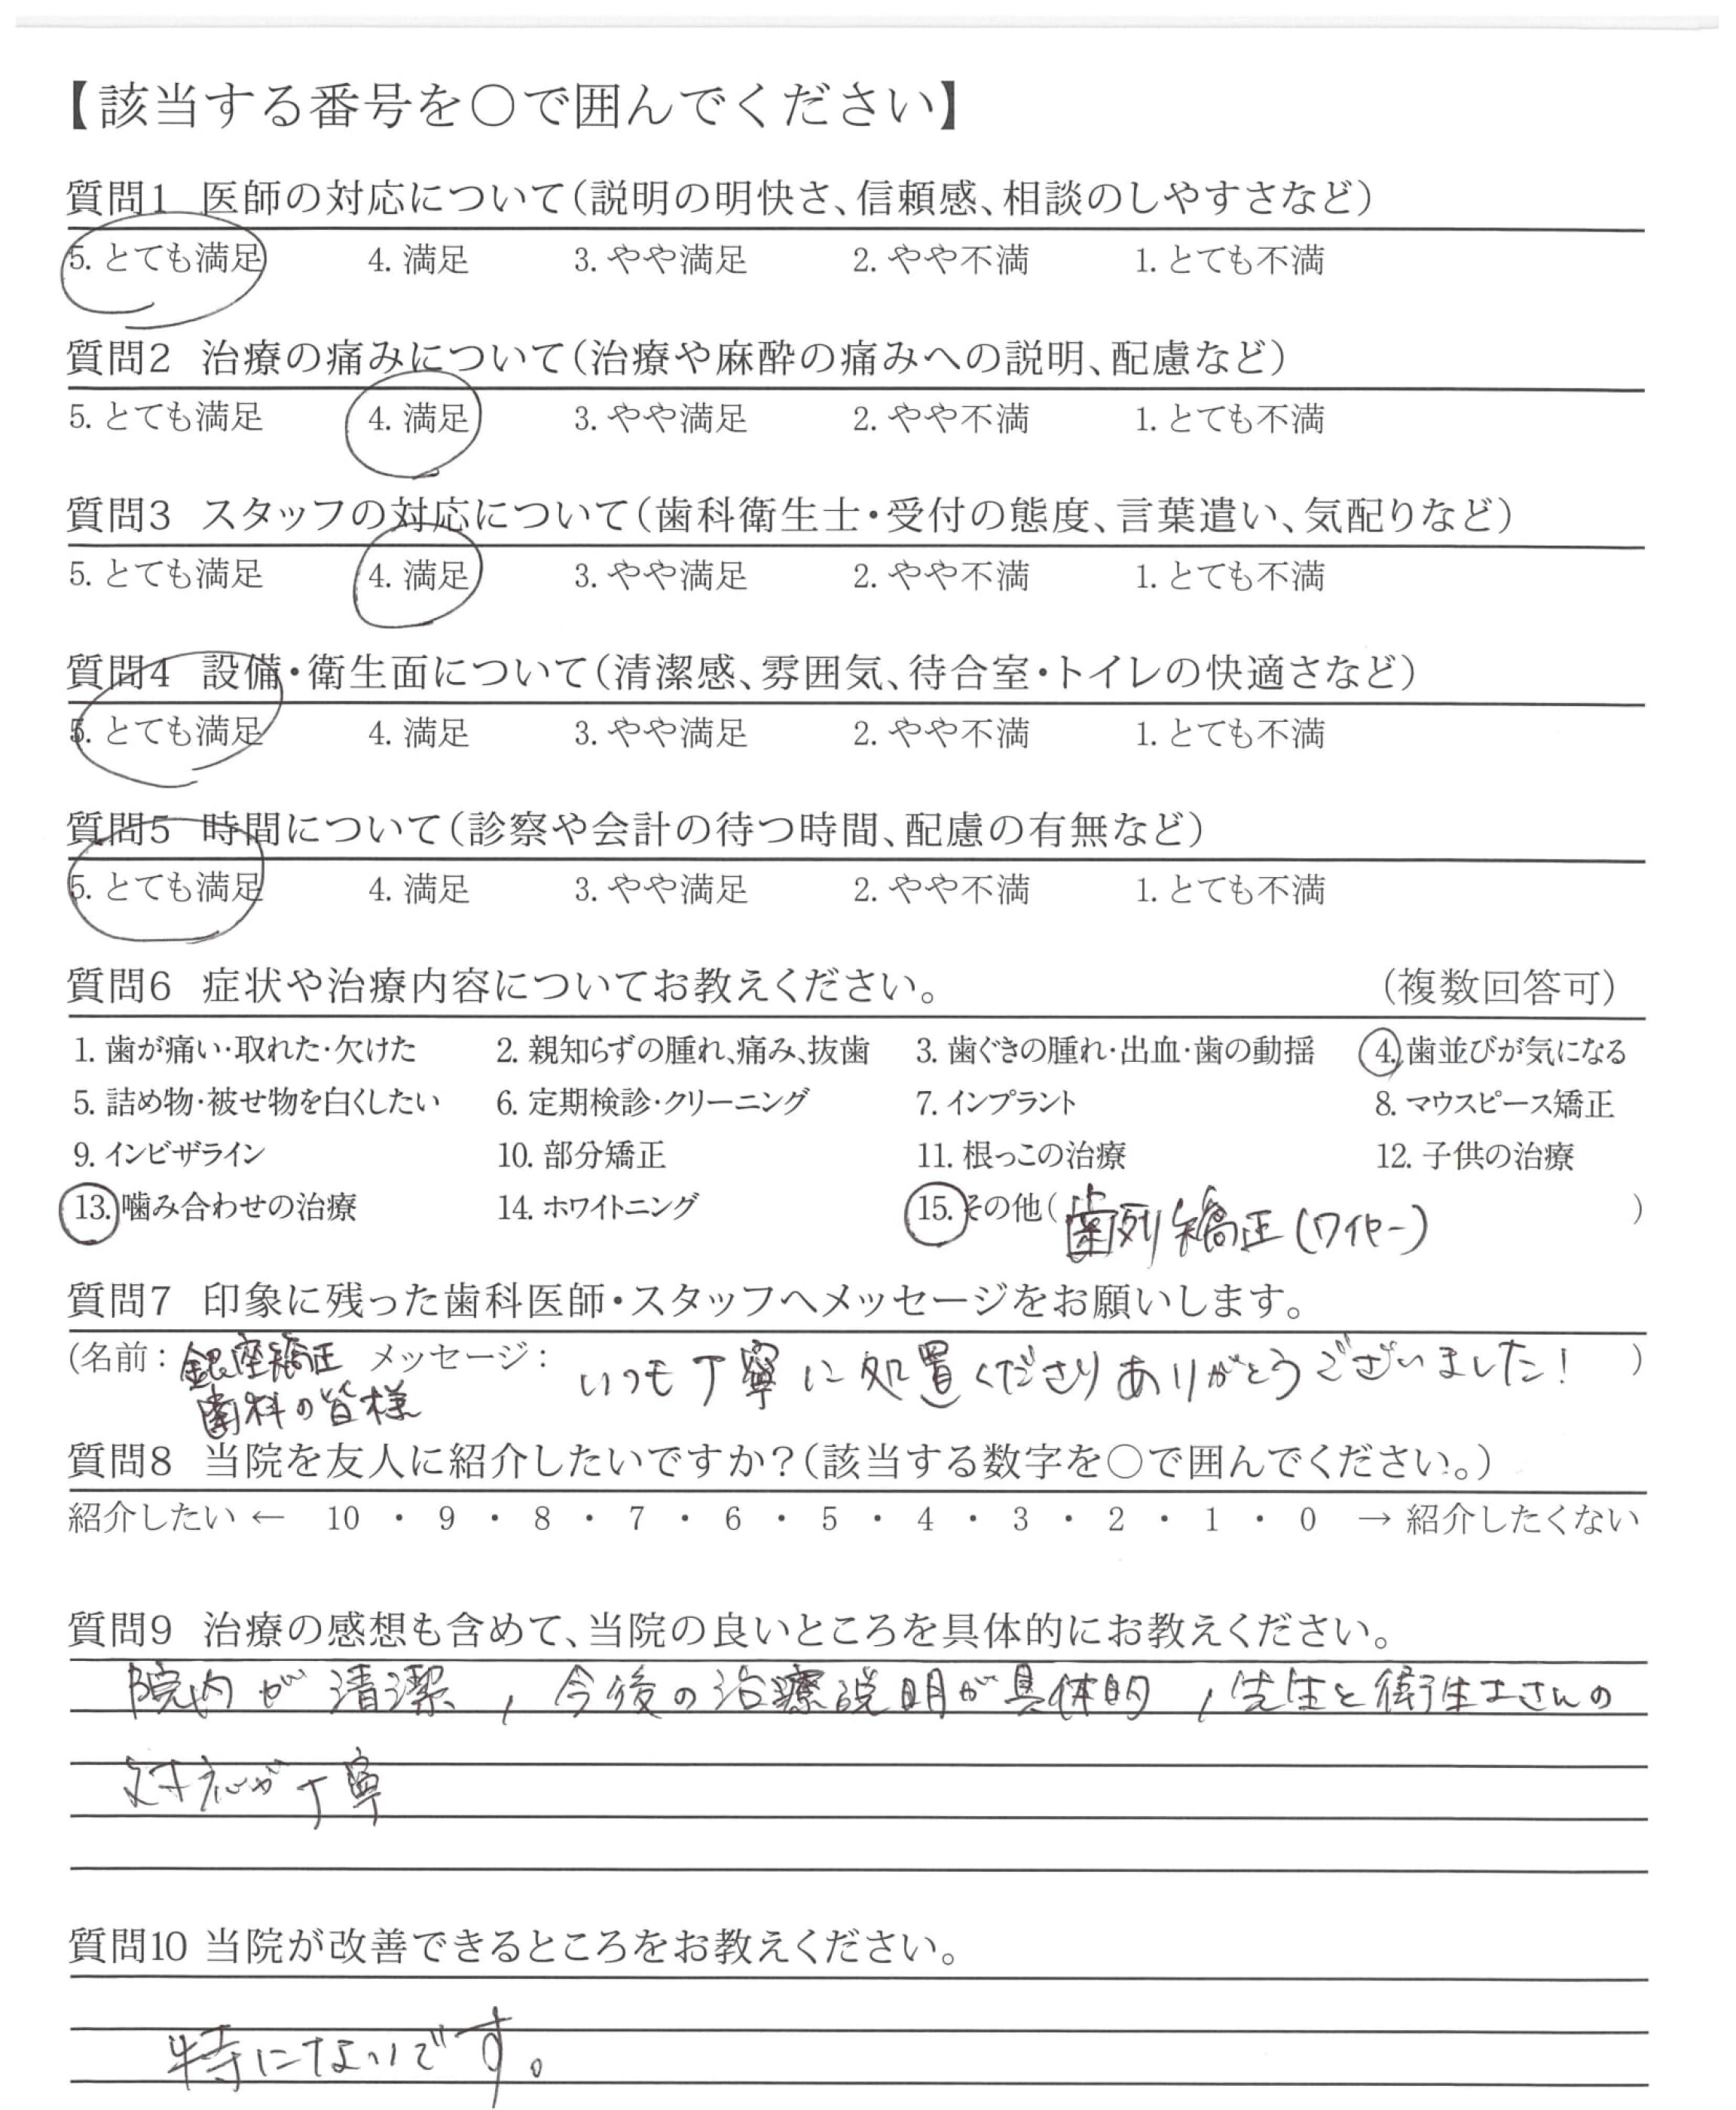 【該当する番号を○で囲んでください】
質問1 医師の対応について(説明の明快さ、信頼感、相談のしやすさなど)
5. とても満足 4. 満足 3. やや満足 2. やや不満 1. とても不満
質問2 治療の痛みについて(治療や麻酔の痛みへの説明、配慮など)
5. とても満足 4. 満足 3. やや満足 2. やや不満 1. とても不満
質問3 スタッフの対応について(歯科衛生士・受付の態度、言葉遣い、気配りなど)
5. とても満足 4. 満足 3. やや満足 2. やや不満 1. とても不満
質問4 設備・衛生面について(清潔感、雰囲気、待合室・トイレの快適さなど)
5. とても満足 4. 満足 3. やや満足 2. やや不満 1. とても不満
質問5 時間について(診察や会計の待つ時間、配慮の有無など)
5. とても満足 4. 満足 3. やや満足 2. やや不満 1. とても不満
質問6 症状や治療内容についてお教えください。 (複数回答可)
1. 歯が痛い・取れた・欠けた 2. 親知らずの腫れ、痛み、抜歯 3. 歯ぐきの腫れ・出血・歯の動揺 4. 歯並びが気になる
5. 詰め物・被せ物を白くしたい 6. 定期検診・クリーニング 7. インプラント 8. マウスピース矯正
9. インビザライン 10. 部分矯正 11. 根っこの治療 12. 子供の治療
13. 噛み合わせの治療 14. ホワイトニング 15. その他( 歯列矯正(ワイヤー) )
質問7 印象に残った歯科医師・スタッフへメッセージをお願いします。
(名前: 銀座矯正 メッセージ: いつも丁寧に処置くださりありがとうございました! )
歯科の皆様
質問8 当院を友人に紹介したいですか?(該当する数字を○で囲んでください。)
紹介したい ← 10 ・ 9 ・ 8 ・ 7 ・ 6 ・ 5 ・ 4 ・ 3 ・ 2 ・ 1 ・ 0 → 紹介したくない
質問9 治療の感想も含めて、当院の良いところを具体的にお教えください。
院内が清潔, 今後の治療説明が具体的, 先生と衛生士さんの
対応が丁寧
質問10 当院が改善できるところをお教えください。
特にないです。